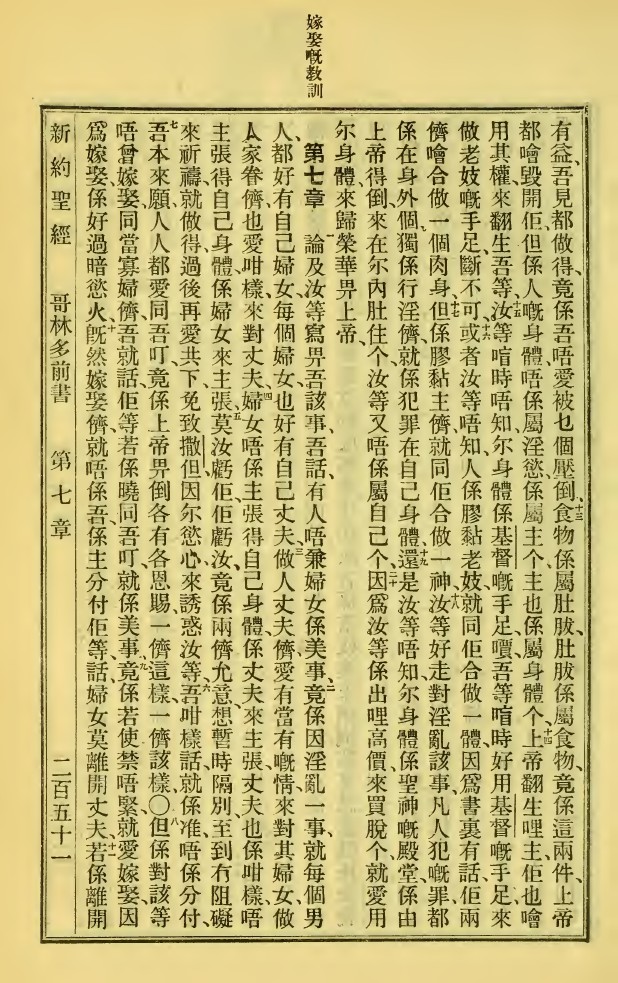 嫁娶嘅教訓
有益、吾見都做得、竟係吾唔愛被乜個壓倒、十三食物係屬肚胈、肚胈係屬食物、竟係這兩件、上帝
都噲毀開佢、但係人嘅身體、唔係屬淫慾、係屬主个、主也係屬身體個、十四上帝翻生哩主佢也噲
用其權、來翻生吾等、十五汝等喑時唔知尔身體係基督嘅手足、嚽吾等喑時好用基督嘅手足、來
做老妓嘅手足、斷不可、十六或者汝等唔知、人係膠黏老妓、就同佢合做一體、因爲書裏有話、佢兩
儕噲合做一個肉身、十七但係膠黏主儕、就同佢合做一神、十八汝等好走對淫亂該事、凡人犯嘅罪、都
係在身外個、獨係行淫儕、就係犯罪在自己身體、十九還是汝等唔知尔身體、係聖神嘅殿堂、係由
上帝得倒來、在尔內肚住个、汝等又唔係屬自己个、二十因爲汝等係出哩高價來買脫个、就愛用
尔身體、來歸榮華畀上帝、
第七章 一論及汝等寫畀吾該事、吾話、有人唔兼婦女係美事、二竟係因淫亂一事、就每個男
人、都好有自己婦女、每個婦女、也好有自己丈夫、三做人丈夫儕、愛有當有嘅情來對其婦女、做
人家眷儕、也愛咁樣來對丈夫、四婦女唔係主張得自己身體、係丈夫來主張、丈夫也係咁樣、唔
主張得自己身體、係婦女來主張、五莫汝虧佢佢虧汝、竟係兩儕允意、想暫時隔別、至到冇阻礙
來祈禱、就做得、過後再愛共下、免致撒但因尔慾心、來誘惑汝等、六吾咁樣話、就係准、唔係分付、
七吾本來願人人都愛同吾叮、竟係上帝畀倒各有各恩賜、一儕這樣、一儕該樣、〇八但係對該等
唔曾嫁娶、同當寡婦儕、吾就話佢等、若係曉同吾叮、就係美事、九竟係若使禁唔緊、就愛嫁娶、因
爲嫁娶係好過暗慾火、十旣然嫁娶儕、就唔係吾、係主分付佢等、話、婦女莫離開丈夫、十一若係離開
新約聖經 哥林多前書 第七章 二百五十一